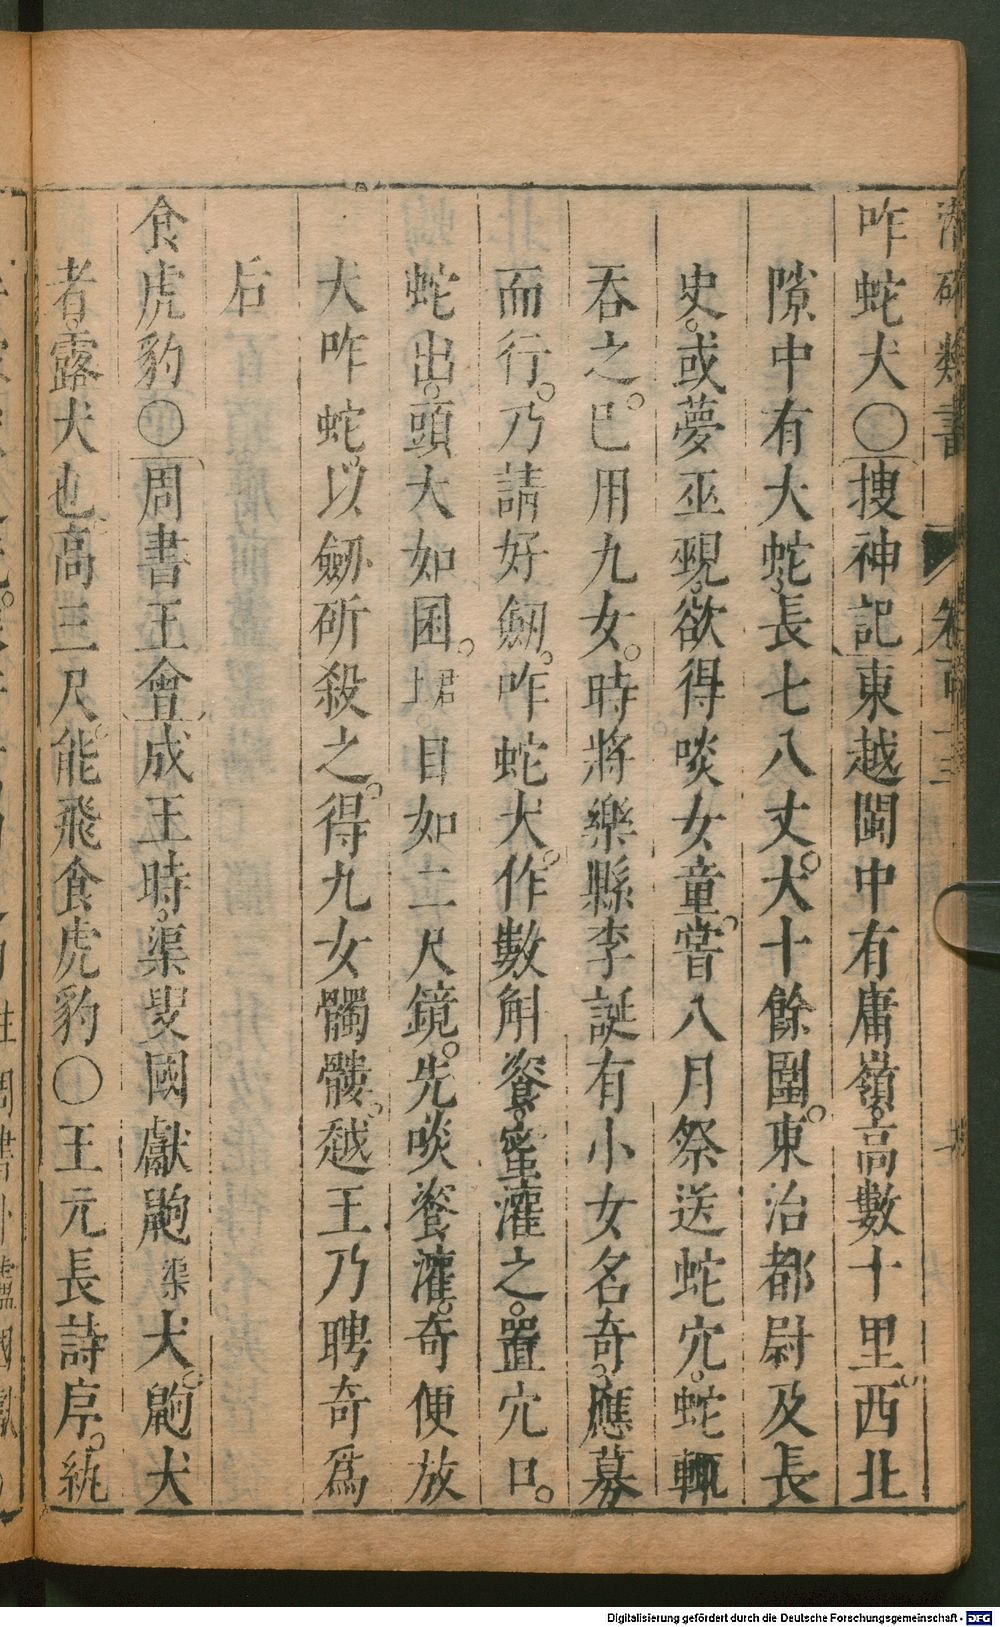 類書 卷百十三
咋蛇犬〇搜神記東越閩中有庸嶺高數十里西北
隙中有大蛇長七八丈大十餘圍東治都尉及長
史或夢巫覡欲得啖女童嘗八月祭送蛇穴蛇輒
吞之巳用九女時將樂縣李誕有小女名奇應募
而行乃請好劒咋蛇犬作數斛餈蜜灌之置穴口
蛇出頭大如囷目如二尺鏡先啖餈灌奇便放
犬咋蛇以劒斫殺之得九女髑髏越王乃聘奇爲
后
食虎豹〇周書王會成王時渠叟國獻䶂渠犬䶂犬
者露犬也高三尺能飛食虎豹〇王元長詩序紈
Digitalisierung gefördert durch die Deutsche Forschungsgemeinschaft - DFG